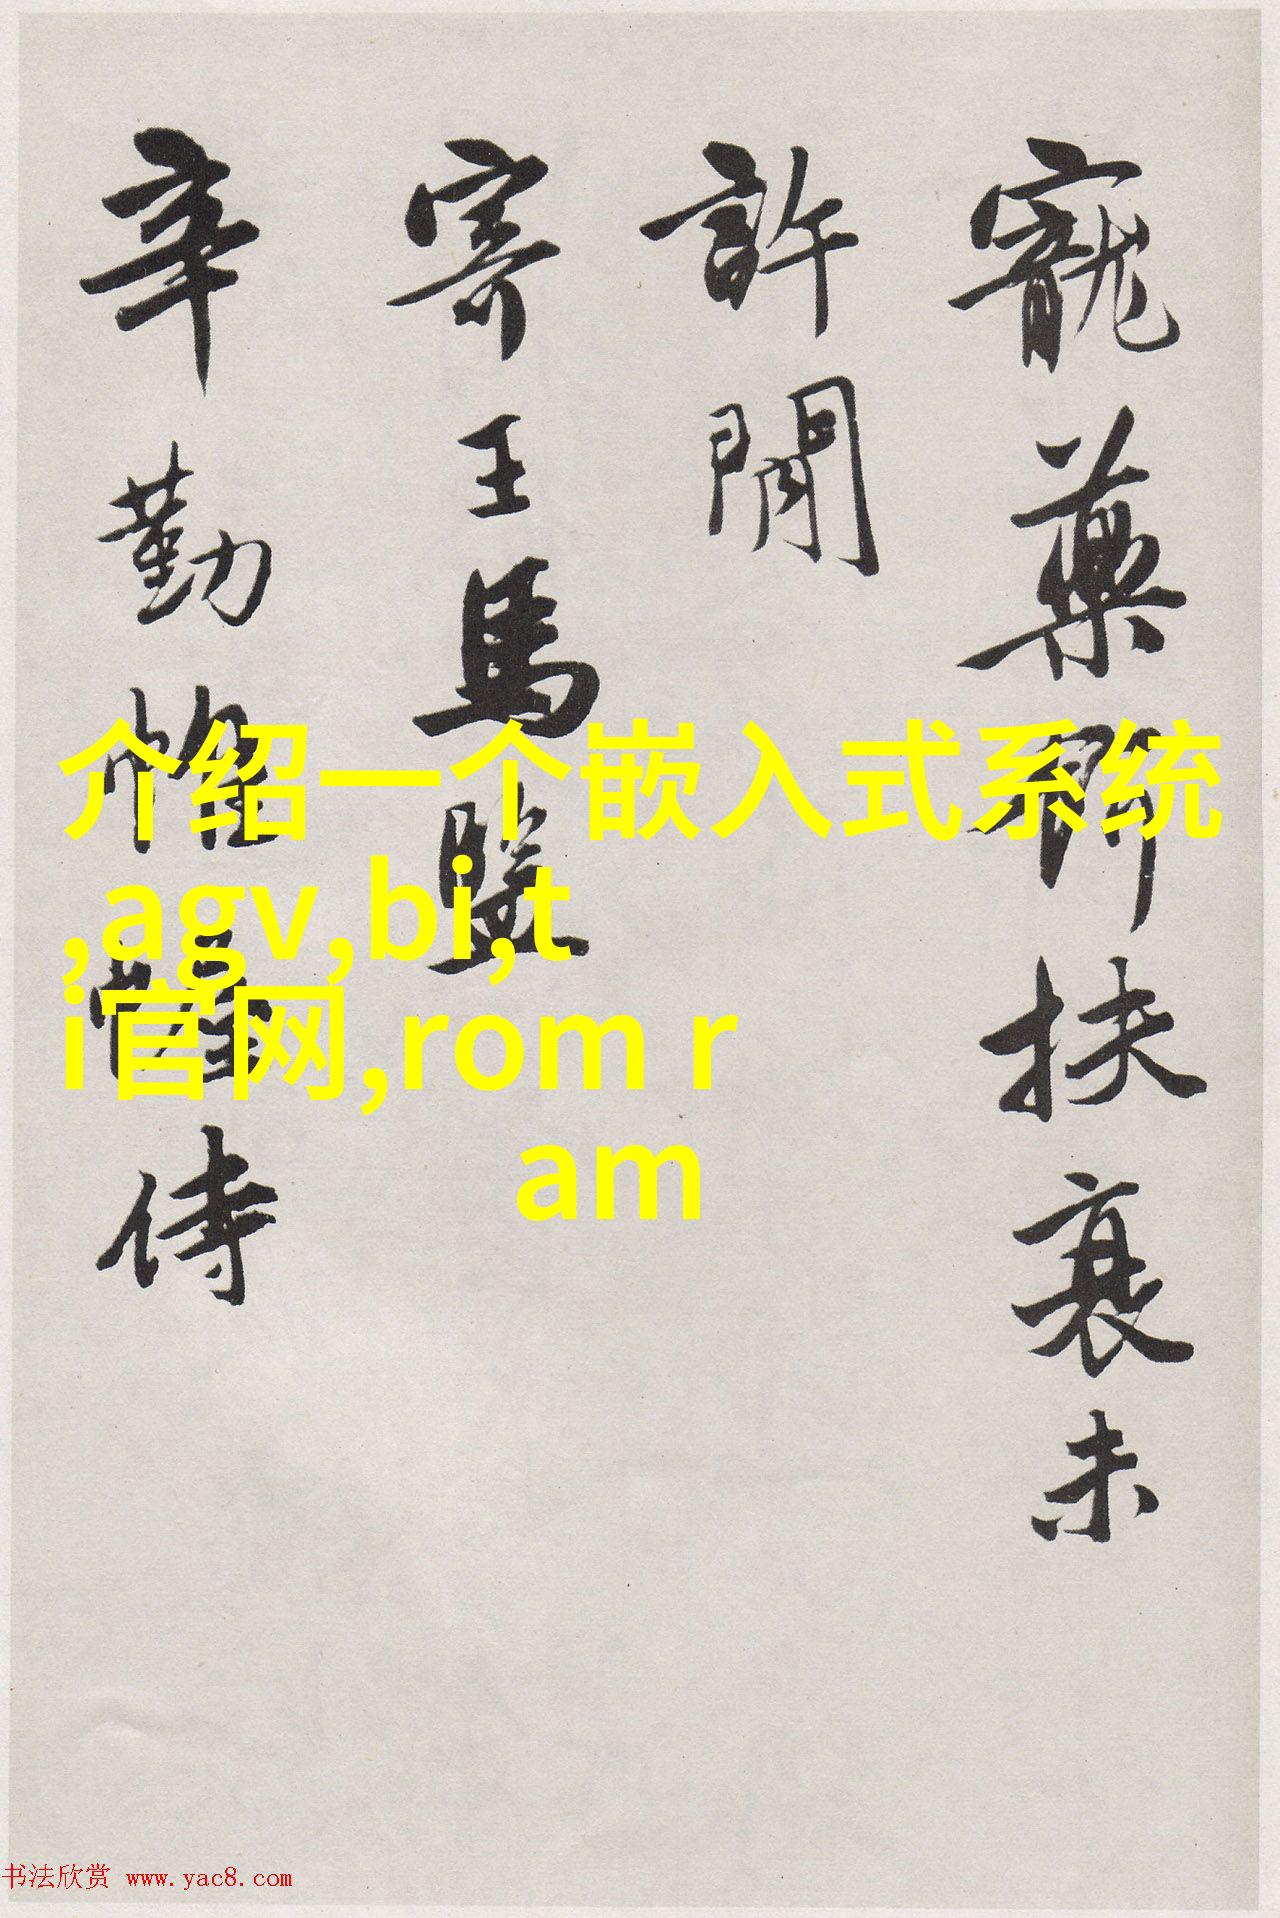 寵藥那扶衰未
許閒
寄王馬監
辛勤帷幄侍
介绍一个嵌入式系统
,agv,bi,t
i官网,rom r
am
书法欣赏 www.yac8.com